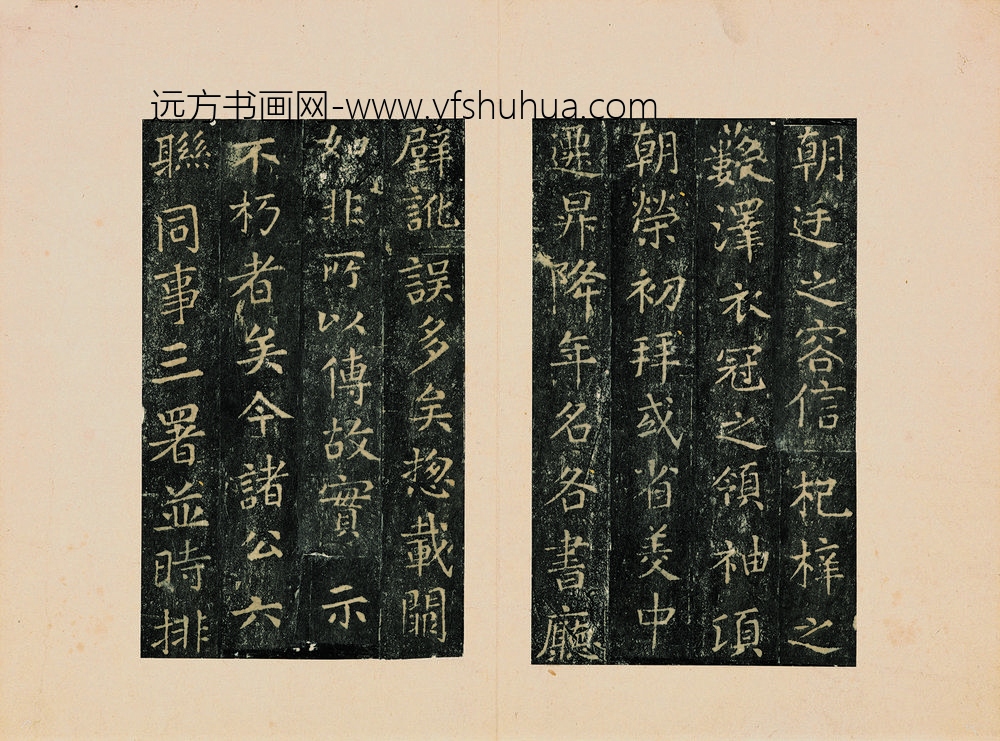 远方书画网-www.yfshuhua.com
朝廷之容信杞梓之
藪澤衣冠之領袖項
朝榮初拜或省美中
遷昇降年名各書廳
壁訛誤多矣惣載闕
如非所以傳故實示
不朽者矣今諸公六
聯同事三署並時排